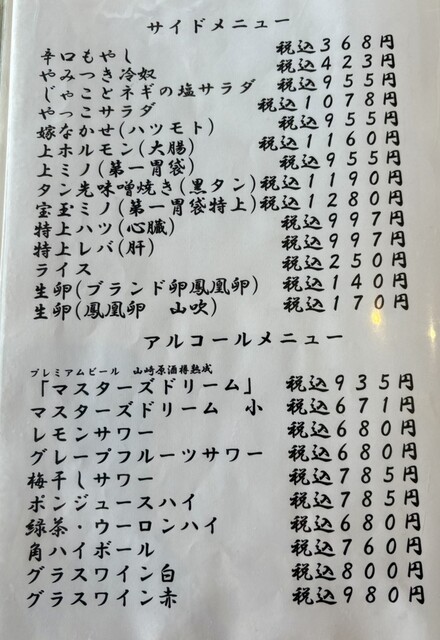 サイドメニュー
辛口もやし 税込368円
やみつき冷奴 税込423円
じゃことネギの塩サラダ 税込955円
やっこサラダ 税込1078円
嫁なかせ(ハツモト) 税込955円
上ホルモン(大腸) 税込1160円
上ミノ(第一胃袋) 税込955円
タン先味噌焼き(黒タン) 税込1190円
宝玉ミノ(第一胃袋特上) 税込1280円
特上ハツ(心臓) 税込997円
特上レバ(肝) 税込997円
ライス 税込250円
生卵(ブランド卵鳳凰卵) 税込140円
生卵(鳳凰卵 山吹) 税込170円
アルコールメニュー
プレミアムビール 山崎原酒樽熟成
「マスターズドリーム」 税込935円
マスターズドリーム 小 税込671円
レモンサワー 税込680円
グレープフルーツサワー 税込680円
梅干しサワー 税込785円
ポンジュースハイ 税込785円
緑茶・ウーロンハイ 税込680円
角ハイボール 税込760円
グラスワイン白 税込800円
グラスワイン赤 税込980円